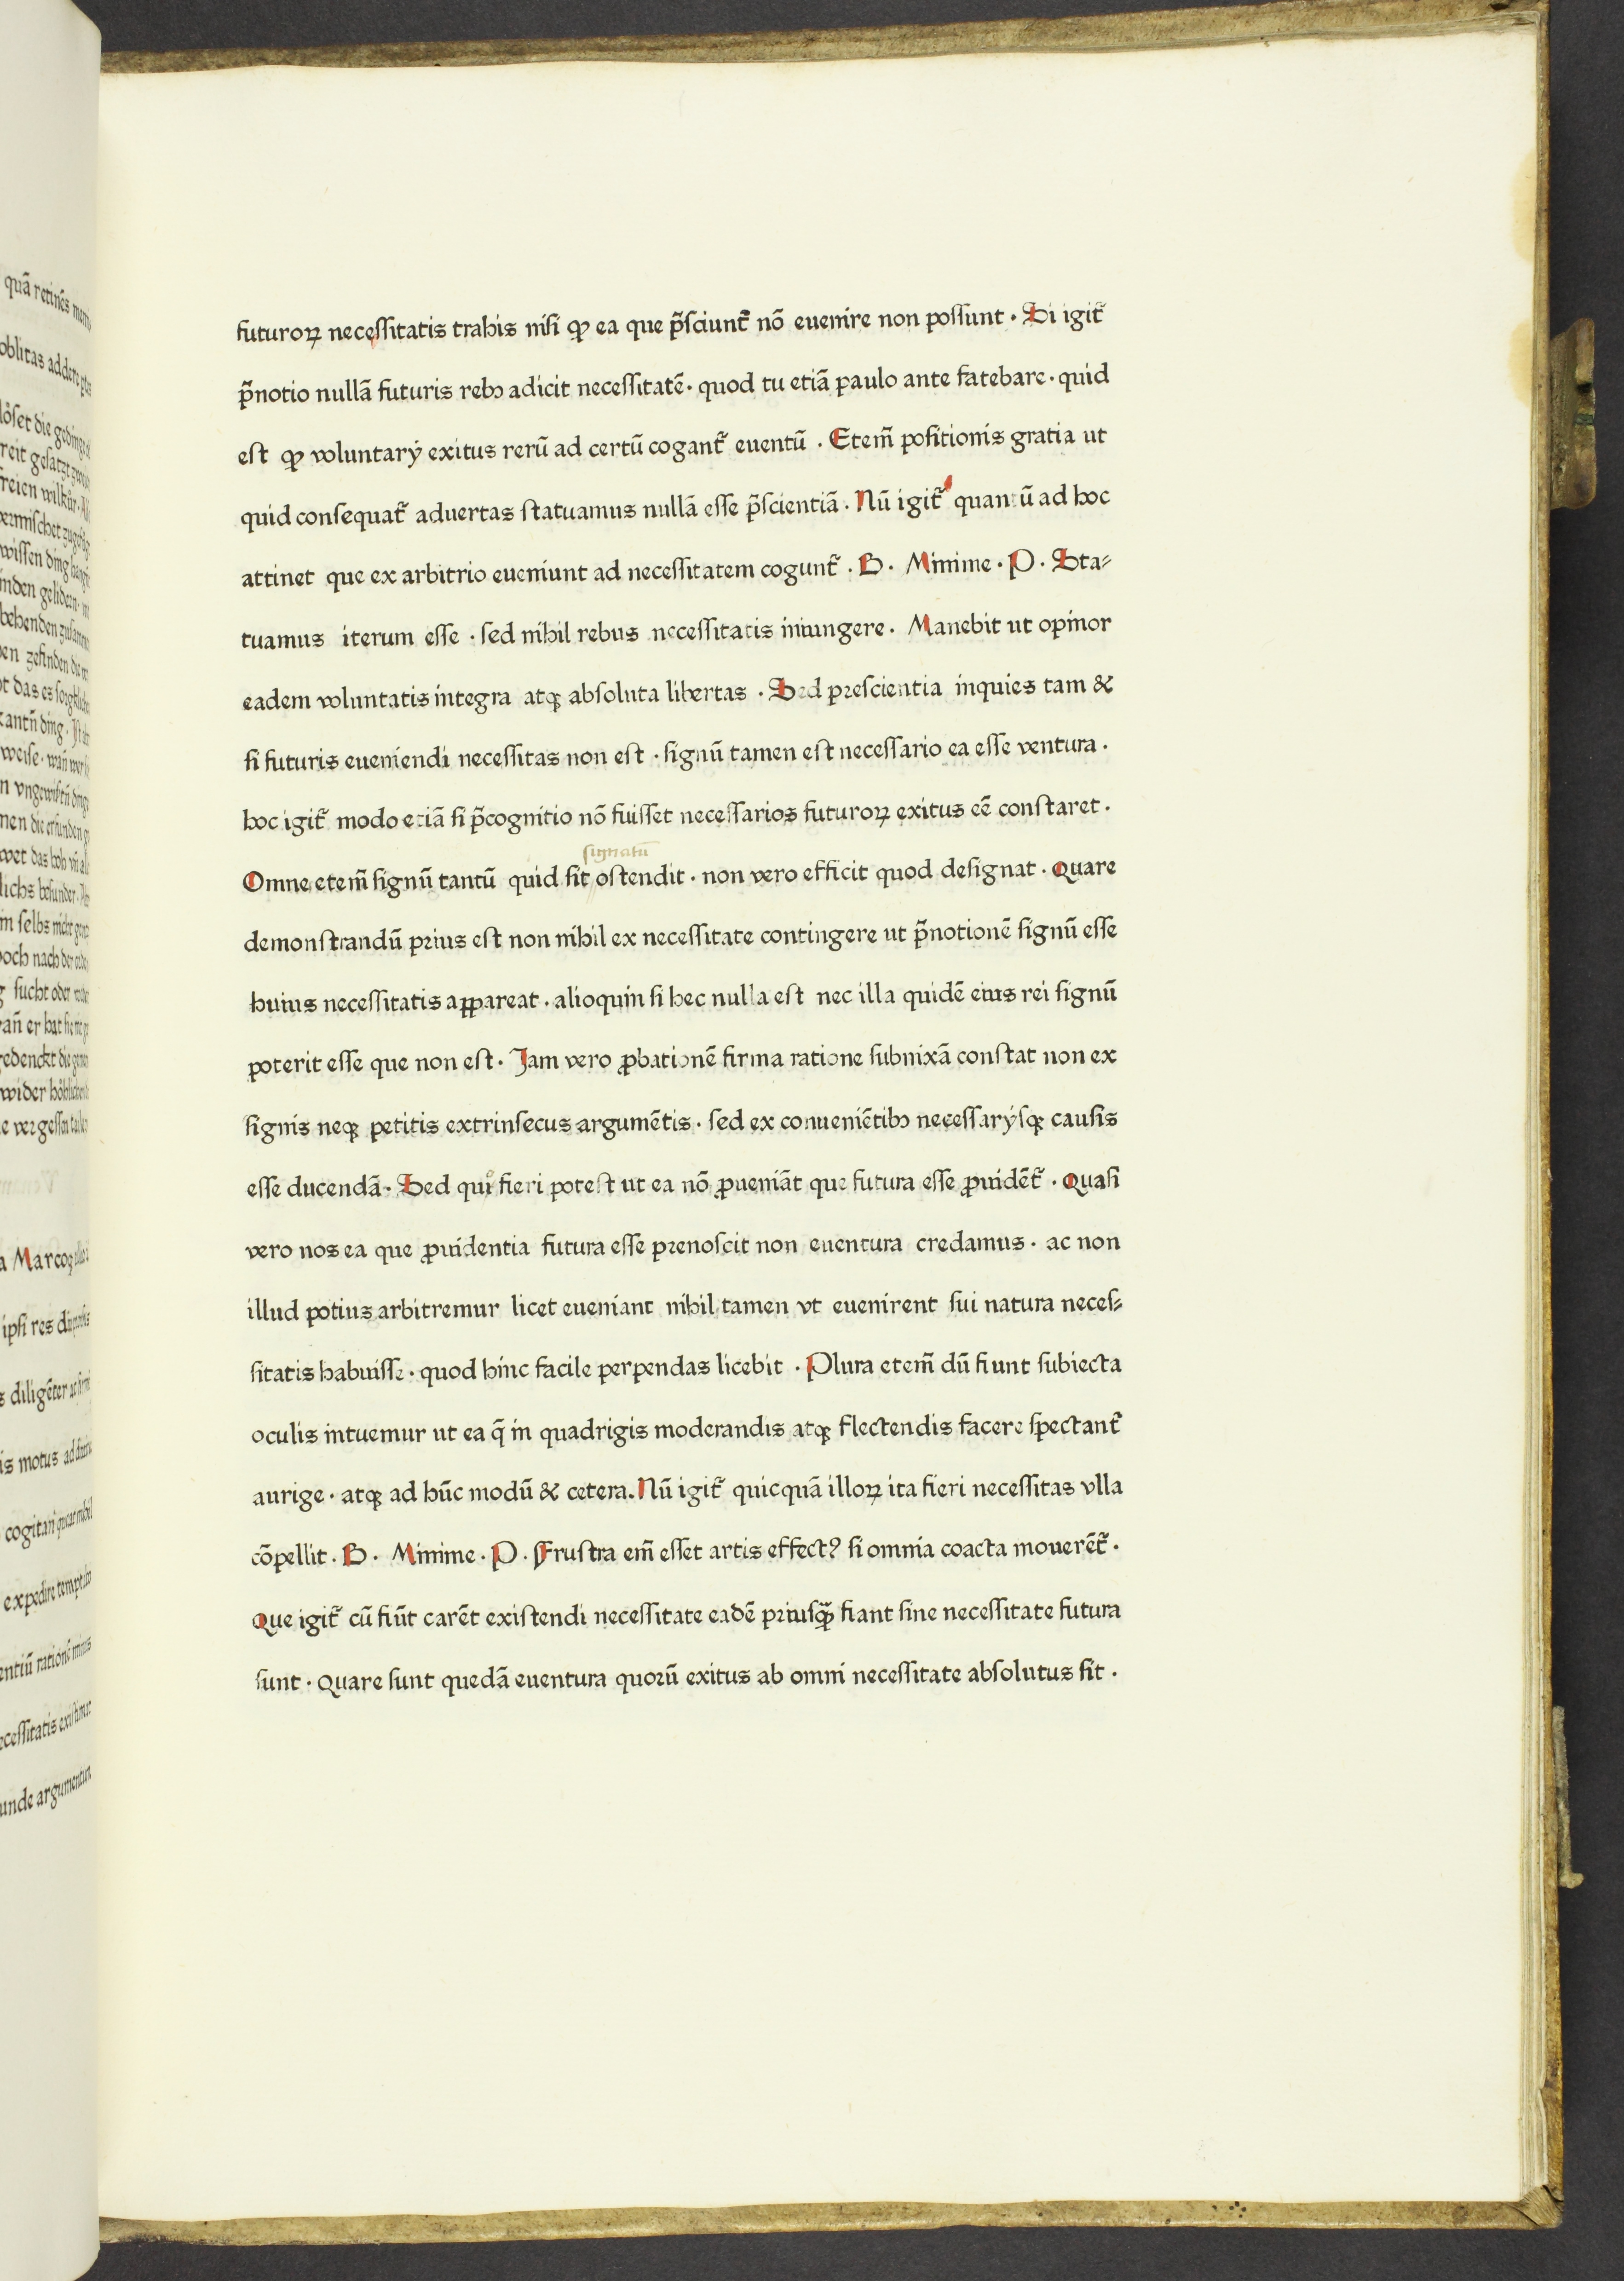 futuroꝝ neceſſitatis trahis niſi ꝙ ea que p̃ſciunt᷑ nō euenire non poſſunt · Si igit᷑
p̃notio nullā futuris rebꝰ adicit neceſſitatē · quod tu etiā paulo ante fatebare · quid
est ꝙ voluntarÿ exitus rerū ad certū cogant᷑ euentū . Etem̄ poſitionis gratia ut
quid consequat᷑ aduertas ſtatuamus nullā eſſe p̃ſcientiā . Nū igit᷑ quantū ad hoc
attinet que ex arbitrio eueniunt ad neceſſitatem cogunt᷑ . B . Minime . P . Sta⸗
tuamus iterum eſſe · ſed nihil rebus neceſſitatis iniungere . Manebit ut opinor
eadem voluntatis integra atqꝫ abſoluta libertas . Sed preſcientia inquies tam &
ſi futuris eueniendi neceſſitas non eſt · ſignū tamen eſt neceſſario ea eſſe ventura .
hoc igit᷑ modo etiā ſi p̃cognitio nō fuiſſet neceſſarios futuroꝝ exitus eē conſtaret .
ſignatū
Omne etem̄ ſignū tantū quid ſit oſtendit . non vero efficit quod deſignat . Quare
demonſtrandū prius eſt non nihil ex neceſſitate contingere ut p̃notionē ſignū eſſe
huius neceſſitatis appareat . alioquin ſi hec nulla eſt nec illa quidē eius rei ſignū
poterit eſſe que non eſt . Jam vero ꝓbationē firma ratione ſubnixā conſtat non ex
ſignis neqꝫ petitis extrinſecus argumētis . ſed ex conueniētibꝰ neceſſarÿſqꝫ cauſis
eſſe ducendā . Sed qui fieri poteſt ut ea nō ꝓueniāt que futura eſſe ꝓuidēt᷑ . Quaſi
vero nos ea que ꝓuidentia futura eſſe prenoſcit non euentura credamus . ac non
illud potius arbitremur licet eueniant nihil tamen vt euenirent ſui natura neceſ⸗
ſitatis habuiſſe . quod hinc facile perpendas licebit . Plura etem̄ dū fiunt ſubiecta
oculis intuemur ut ea q̄ in quadrigis moderandis atqꝫ flectendis facere ſpectant᷑
aurige . atqꝫ ad hūc modū & cetera . Nū igit᷑ quicquā illoꝝ ita fieri neceſſitas vlla
cōpellit . B . Minime . P . Fruſtra em̄ eſſet artis effectꝰ ſi omnia coacta mouerēt᷑ .
Que igit᷑ cū fiūt carēt exiſtendi neceſſitate eadē priuſqꝫ̄ fiant ſine neceſſitate futura
ſunt . Quare ſunt quedā euentura quorū exitus ab omni neceſſitate abſolutus ſit .